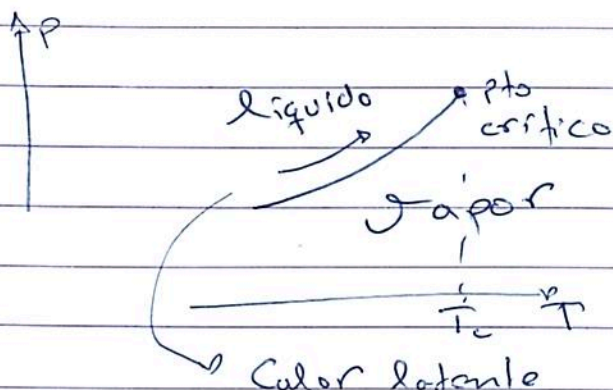 P
líquido
pto
crítico
vapor
Tc T
Calor latente